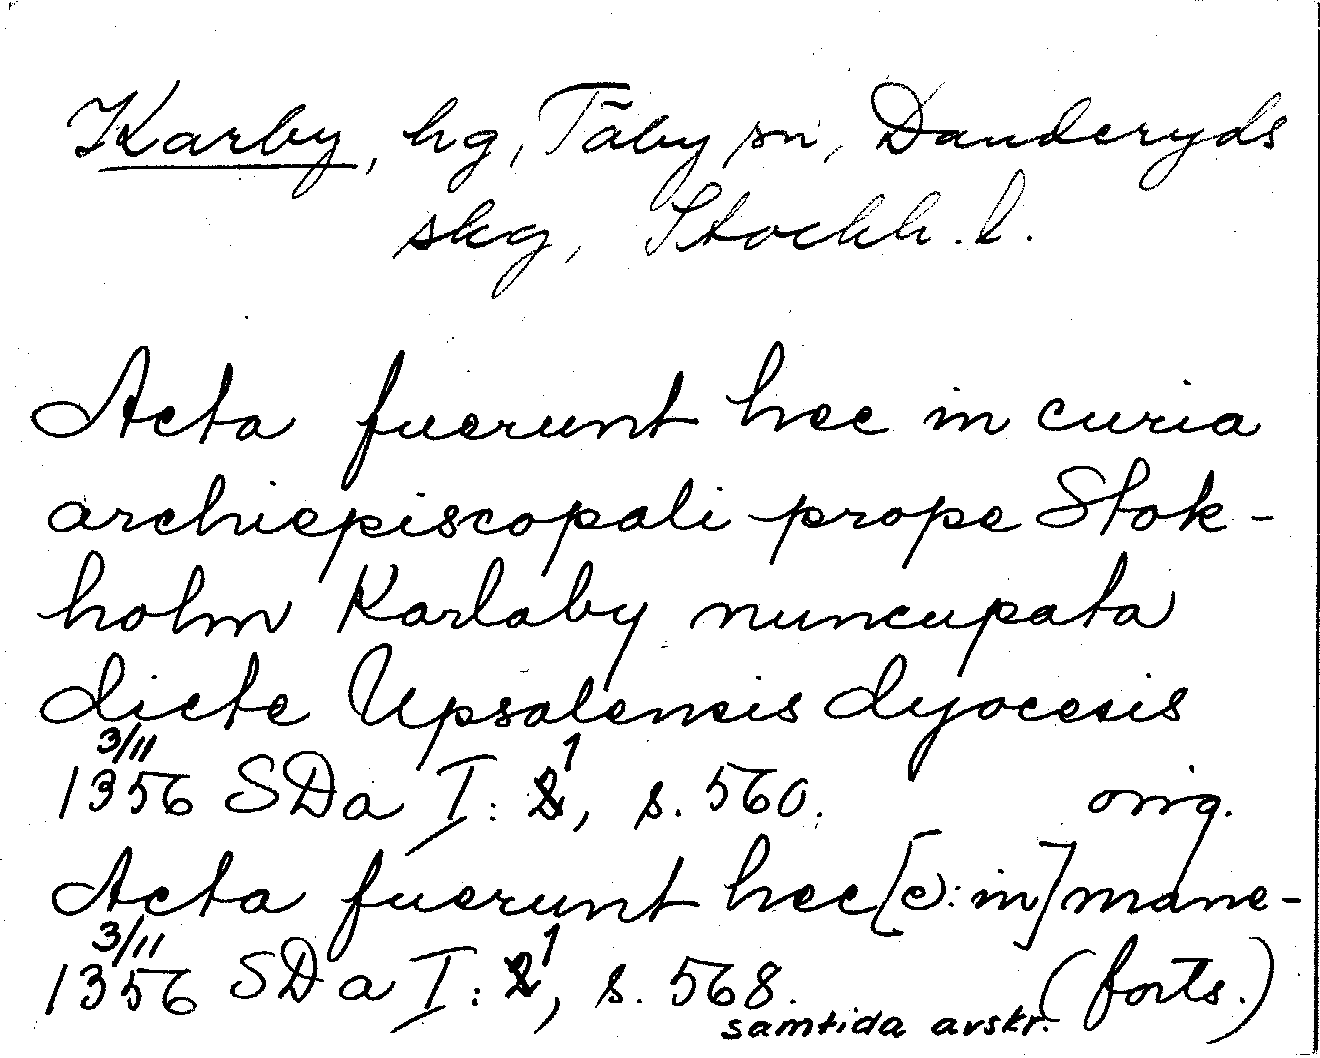 Karby, hg, Täby sn, Danderyds
skg, Stockh. l.
Acta fuerunt hec in curia
archiepiscopali prope Stok-
holm Karlaby nuncupata
dicte Upsalensis dyocesis
3/11
1356 SDa I: 1, s. 560. orig.
Acta fuerunt hec [ɔ: in] mane-
3/11
1356 SDa I: 1, s. 568. (forts.)
samtida avskr.